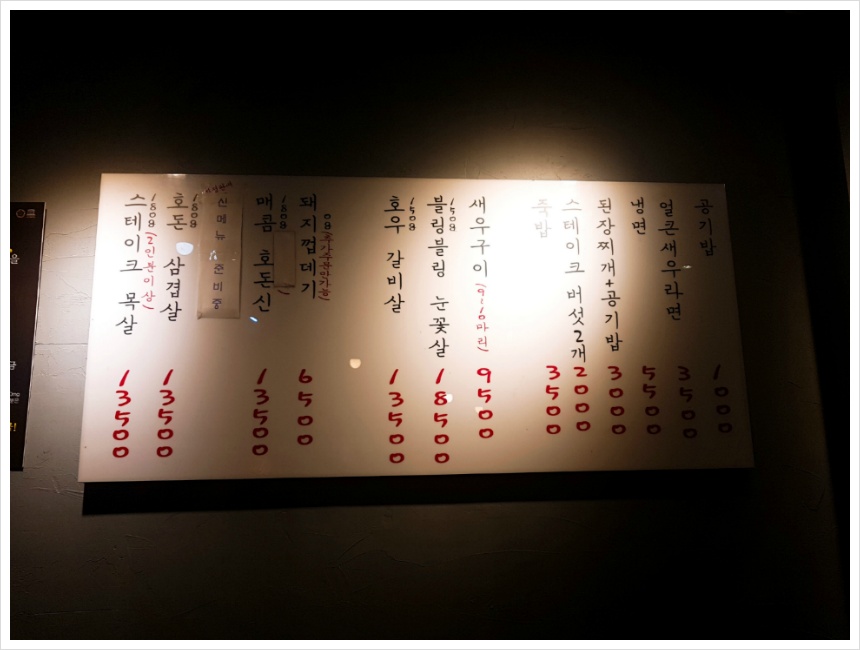 스테이크 목살
180g
(2인분이상)
13500
호돈 삼겹살
180g
13500
신메뉴 준비중
매콤 호돈신
180g
13500
돼지껍데기
(추가주문만가능)
6500
호우 갈비살
150g
13500
블링블링 눈꽃살
150g
18500
새우구이
(9~10마리)
9500
죽밥
3500
스테이크 버섯2개
2000
된장찌개+공기밥
3000
냉면
5500
얼큰새우라면
3500
공기밥
1000